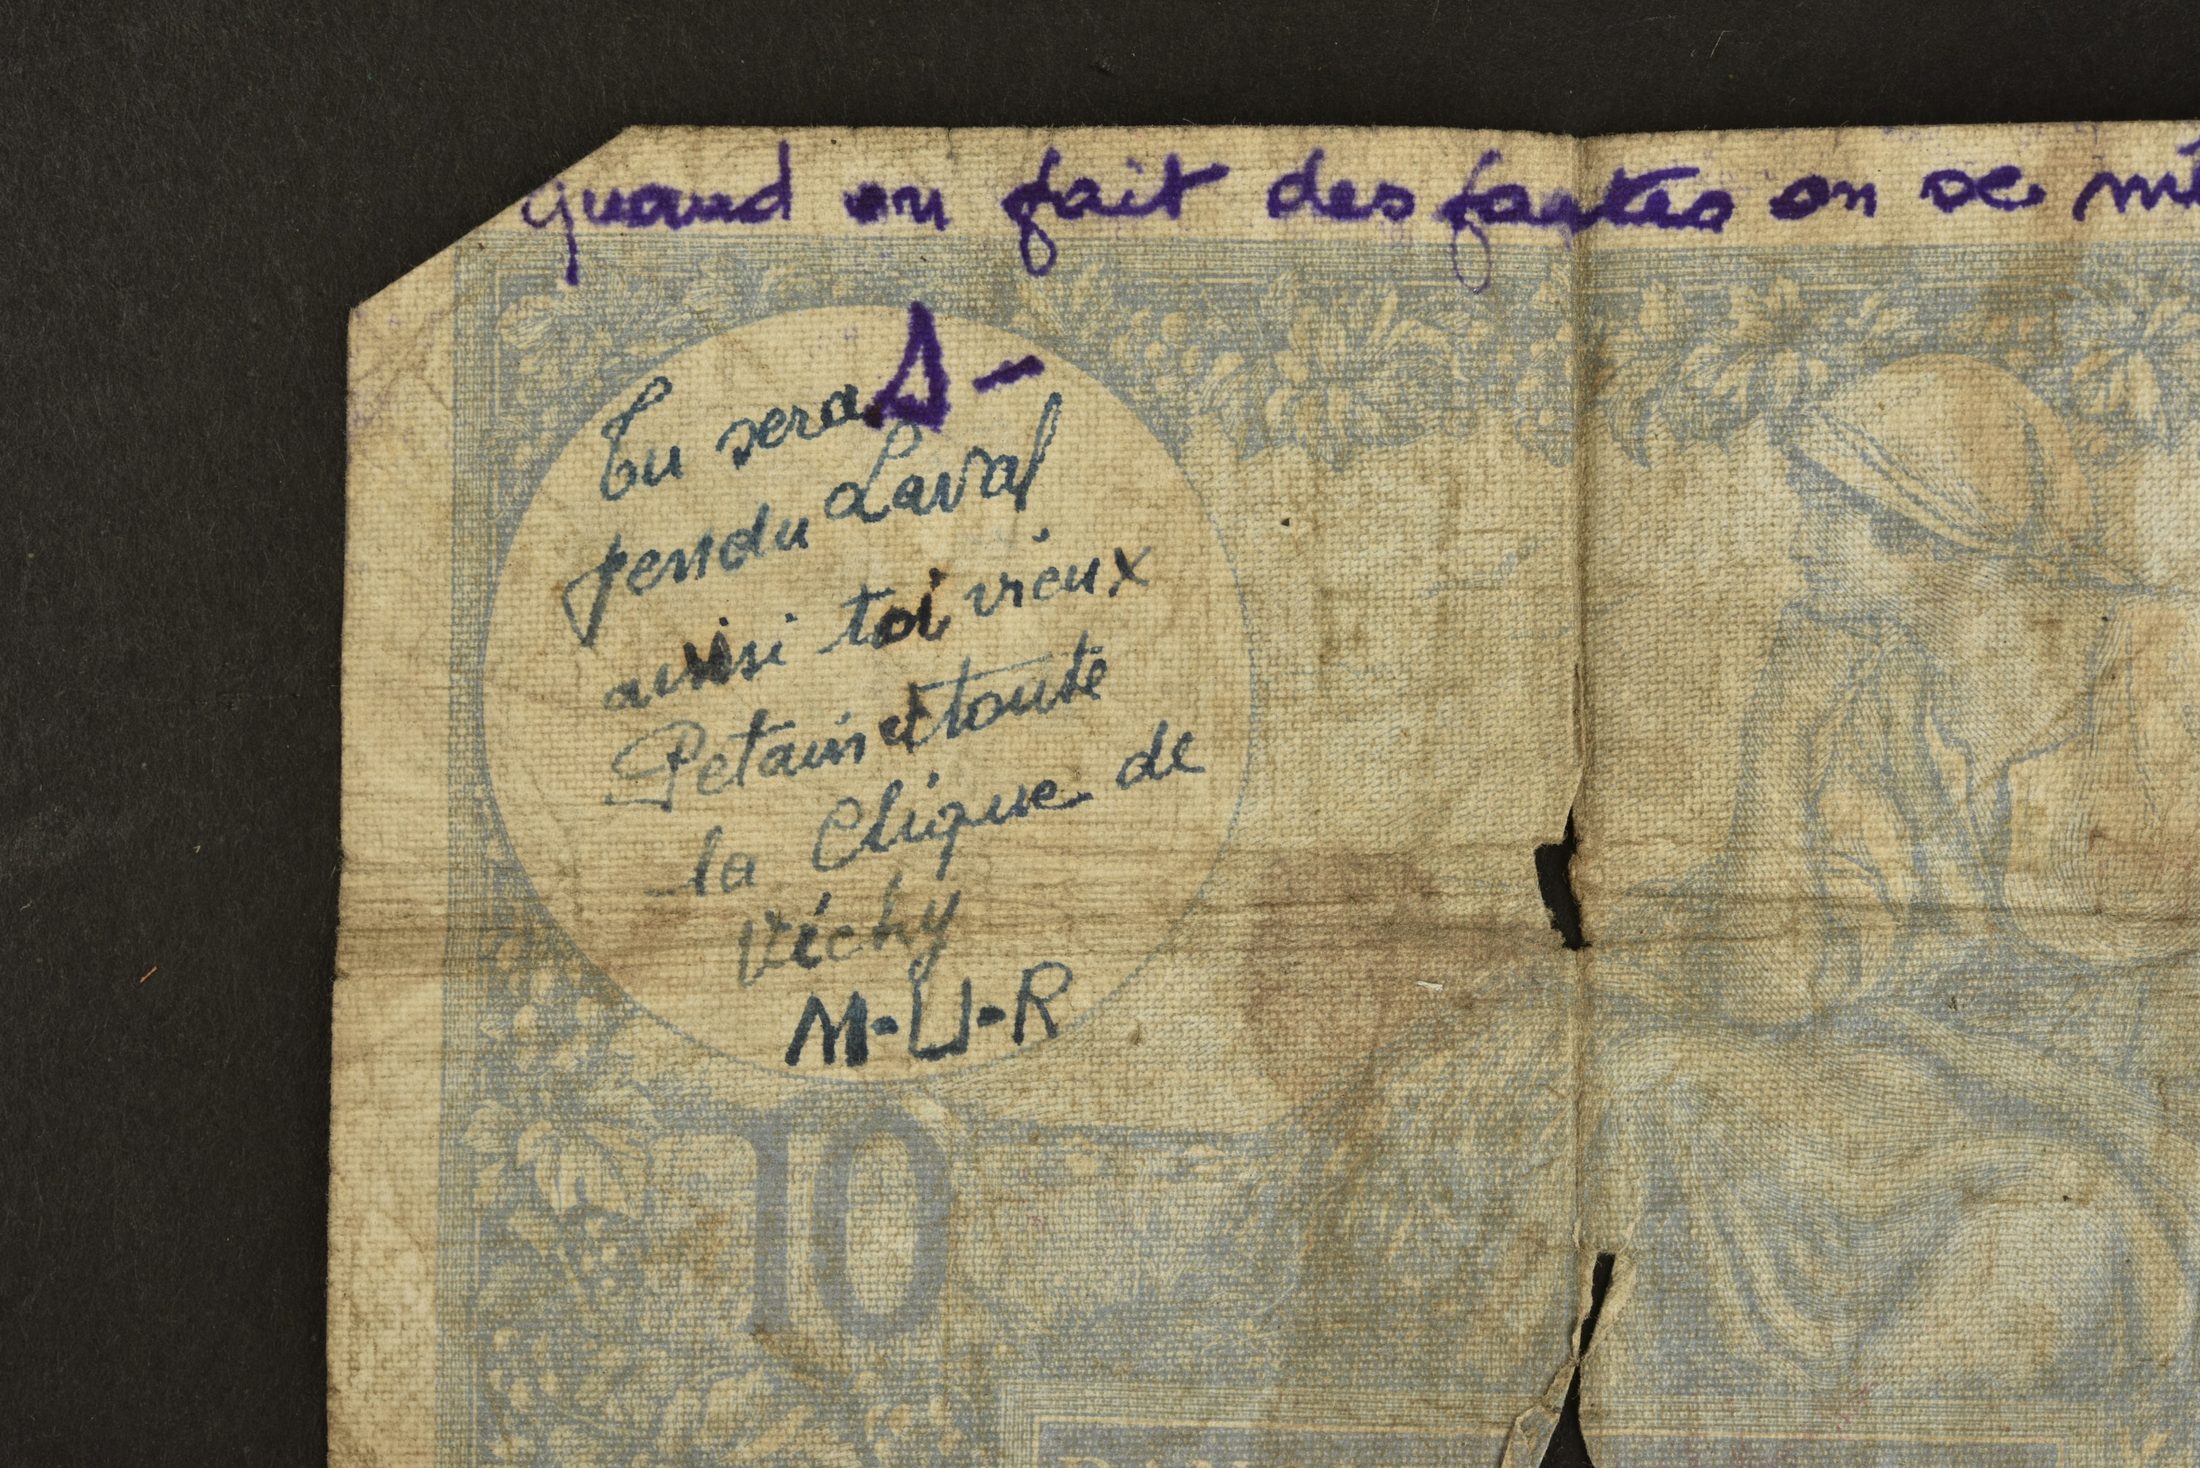 quand on fait des fautes on se
Tu seraS-
pendu Laval
aussi toi vieux
Petain et toute
la Clique de
Vichy
M-U-R
10